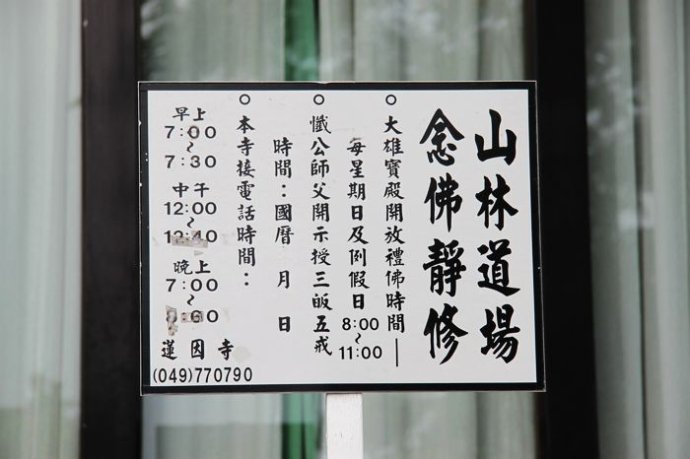 山林道場
念佛靜修
○大雄寶殿開放禮佛時間──
每星期日及例假日8:00~11:00
○懺公師父開示授三皈五戒
時間：國曆 月 日
○本寺接電話時間：
早上
7:00
~
7:30
中午
12:00
~
晚上
7:00
~
蓮因寺
(049)770790